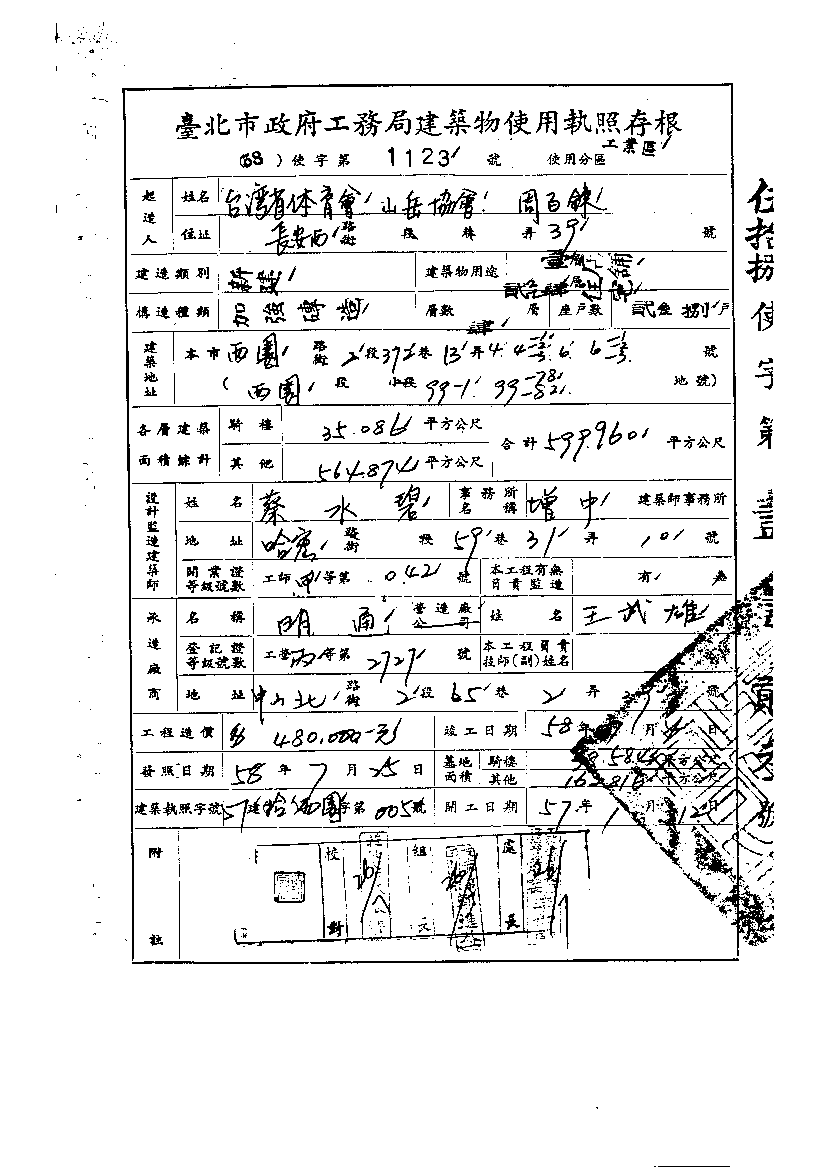 臺北市政府工務局建築物使用執照存根
(58)使字第 1123 號 使用分區 工業區
起造人 姓名 台灣省体育會 山岳協會 周百鍊
住址 長安西 路街 段 巷 弄 39 號
建造類別 新建 建築物用途 壹層店舖 貳叁肆層住宅
構造種類 加強磚造 層數 肆 層 座戶數 貳 捌 戶
建築地址 本市 西園 路街 2 段 372 巷 13 弄 4. 4 6. 6 號
( 西園 段 小段 99-1. 99 地號)
各層建築面積餘計 騎樓 35.086 平方公尺 合計 599.960 平方公尺
其他 564.874 平方公尺
設計監造建築師 姓名 蔡水碧 事務所名稱 增中 建築師事務所
地址 哈密 路街 段 59 巷 31 弄 10 號
開業證等級號數 工師 甲 等第 042 號 本工程有無負責監造 有 無
承造廠商 名稱 明通 營造廠公司 姓名 王武雄
登記證等級號數 工營 丙 等第 2727 號 本工程負責技師(副)姓名
地址 中山北 路街 2 段 65 巷 2 弄 號
工程造價 480.000元 竣工日期 58 年 月 日
發照日期 58 年 7 月 25 日 基地面積 騎樓 平方公尺
其他 平方公尺
建築執照字號 57 建 西園 字第 005 號 開工日期 57 年 1 月 12 日
附註
校對 組長 處長
伍拾捌使字第壹 號